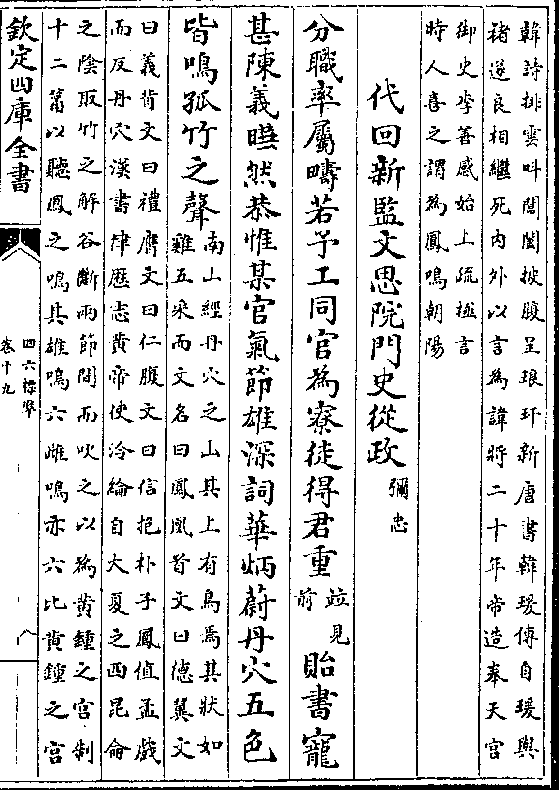 韓詩排雲叫閶闔披腹呈琅玕新唐書韓瑗傳自瑗與
禇遂良相繼死内外以言為諱將二十年帝造奉天宫
御史李善感始上疏極言
時人喜之謂為鳳鳴朝陽
代回新監文思院門史從政彌忠
分職率屬疇若予工同官為寮徒得君重
竝見
前
貽書寵
甚陳義曒然恭惟某官氣節雄深詞華炳蔚丹穴五色
皆鳴孤竹之聲
南山經丹穴之山其上有鳥焉其狀如
雞五采而文名曰鳳凰首文曰德翼文
曰義背文曰禮膺文曰仁腹文曰信抱朴子鳳值孟戲
而反丹穴漢書律歴志黄帝使泠綸自大夏之西昆侖
之陰取竹之解谷斷兩節間而吹之以為黄鍾之宫制
十二筩以聽鳳之鳴其雄鳴六雌鳴亦六比黄鍾之宫
欽定四庫全書
四六標凖
卷十九
八